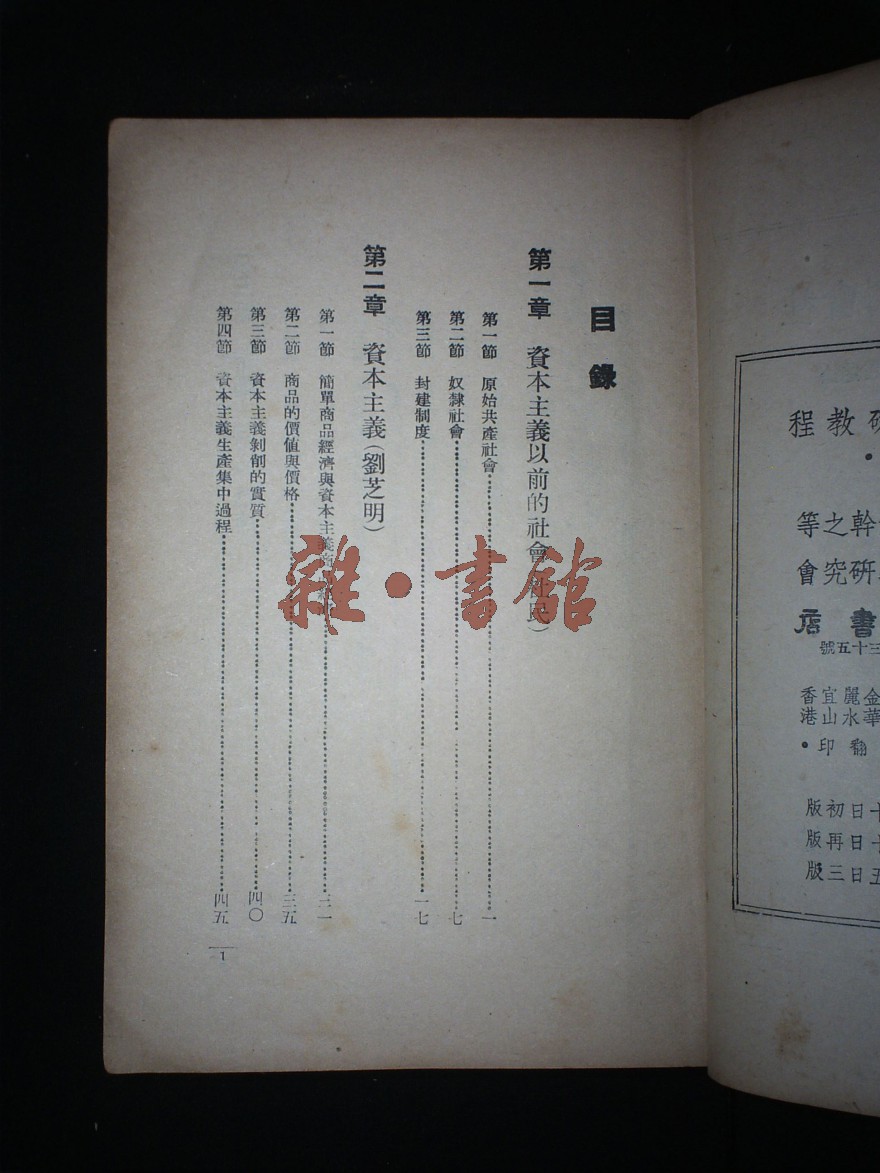 目錄
第一章 資本主義以前的社會 社民）
第一節 原始共產社會 一
第二節 奴隸社會 七
第三節 封建制度 一七
第二章 資本主義（劉芝明）
第一節 簡單商品經濟與資本主義 三一
第二節 商品的價值與價格 三五
第三節 資本主義剝削的實質 四〇
第四節 資本主義生產集中過程 四五
1
雜·書館
研教程
幹之等
研究會
書店
三十五號
金華 麗水 宜山 香港
翻印
十日初版
十日再版
五日三版